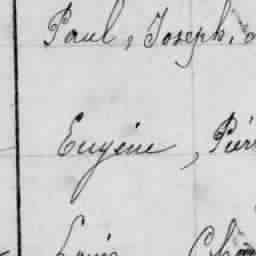 Paul, Joseph,
Eugène, Pierr
Louis